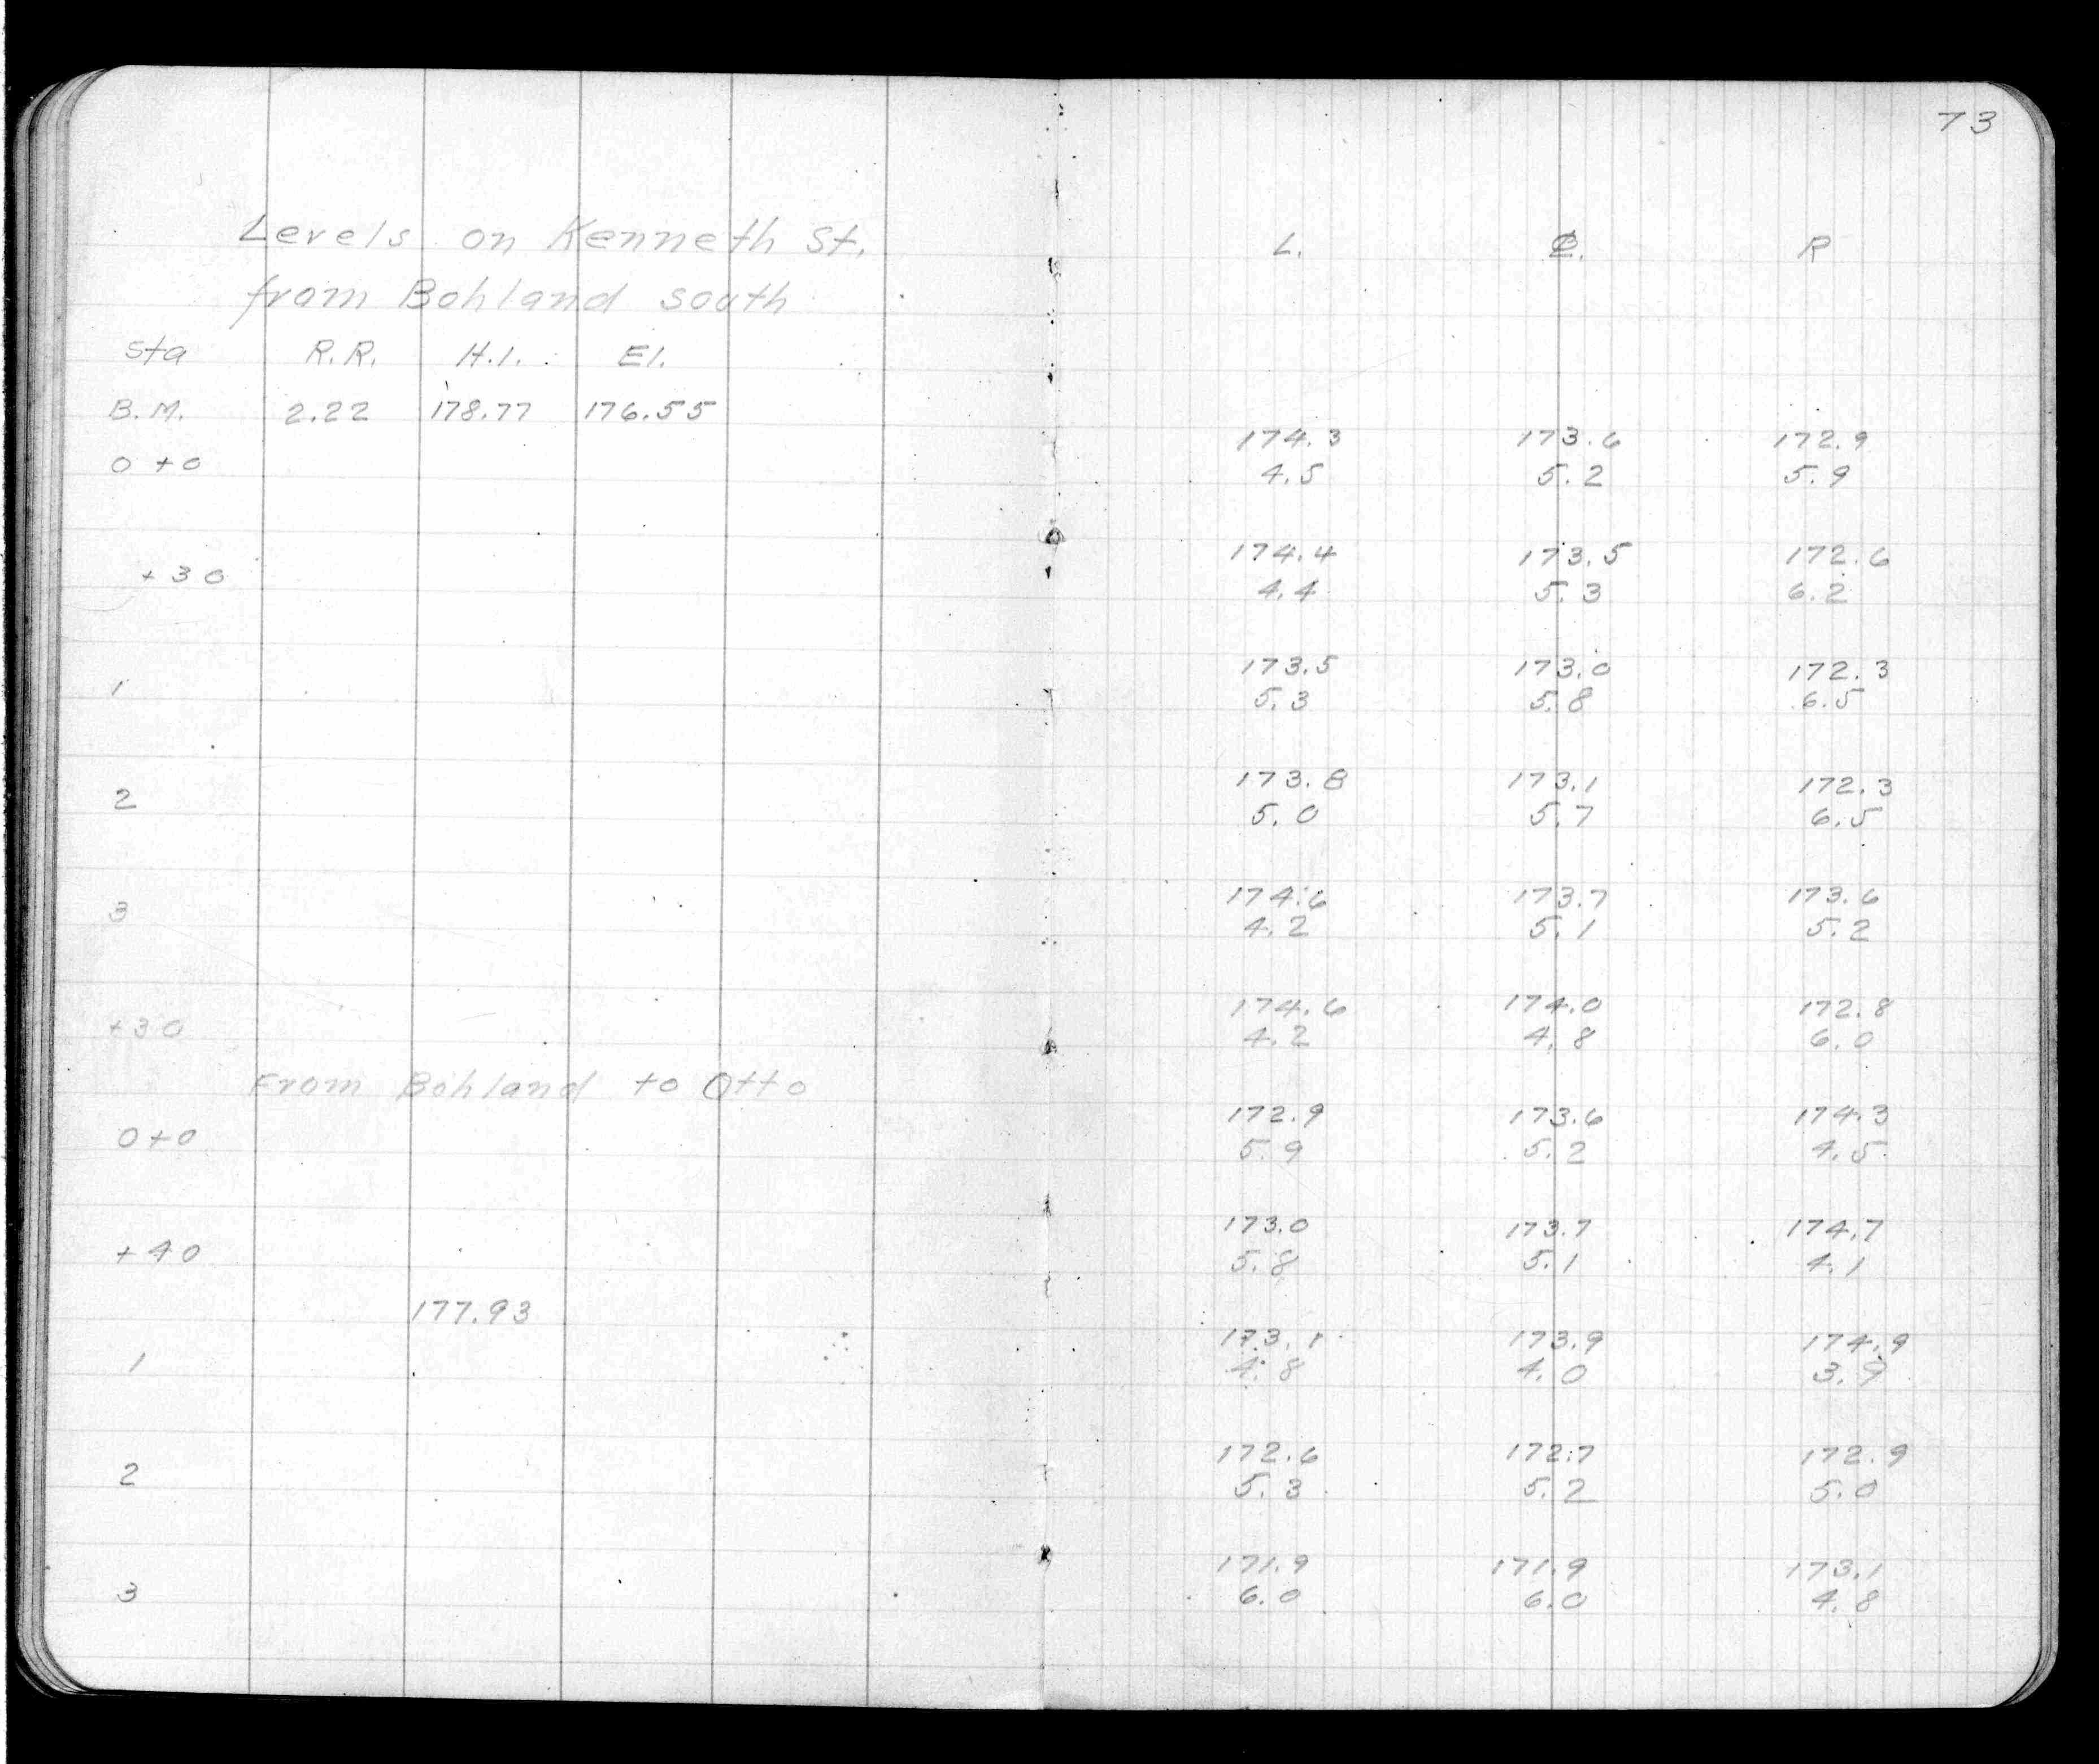 73
Levels on Kenneth St.
from Bohland south
L. ℄. R
Sta R.R. H.I. El.
B.M. 2.22 178.77 176.55
174.3 173.6 172.9
0+0 4.5 5.2 5.9
174.4 173.5 172.6
+30 4.4 5.3 6.2
173.5 173.0 172.3
1 5.3 5.8 6.5
173.8 173.1 172.3
2 5.0 5.7 6.5
174.6 173.7 173.6
3 4.2 5.1 5.2
174.6 174.0 172.8
+30 4.2 4.8 6.0
From Bohland to Otto
172.9 173.6 174.3
0+0 5.9 5.2 4.5
173.0 173.7 174.7
+40 5.8 5.1 4.1
177.93
173.1 173.9 174.9
1 4.8 4.0 3.9
172.6 172.7 172.9
2 5.3 5.2 5.0
171.9 171.9 173.1
3 6.0 6.0 4.8